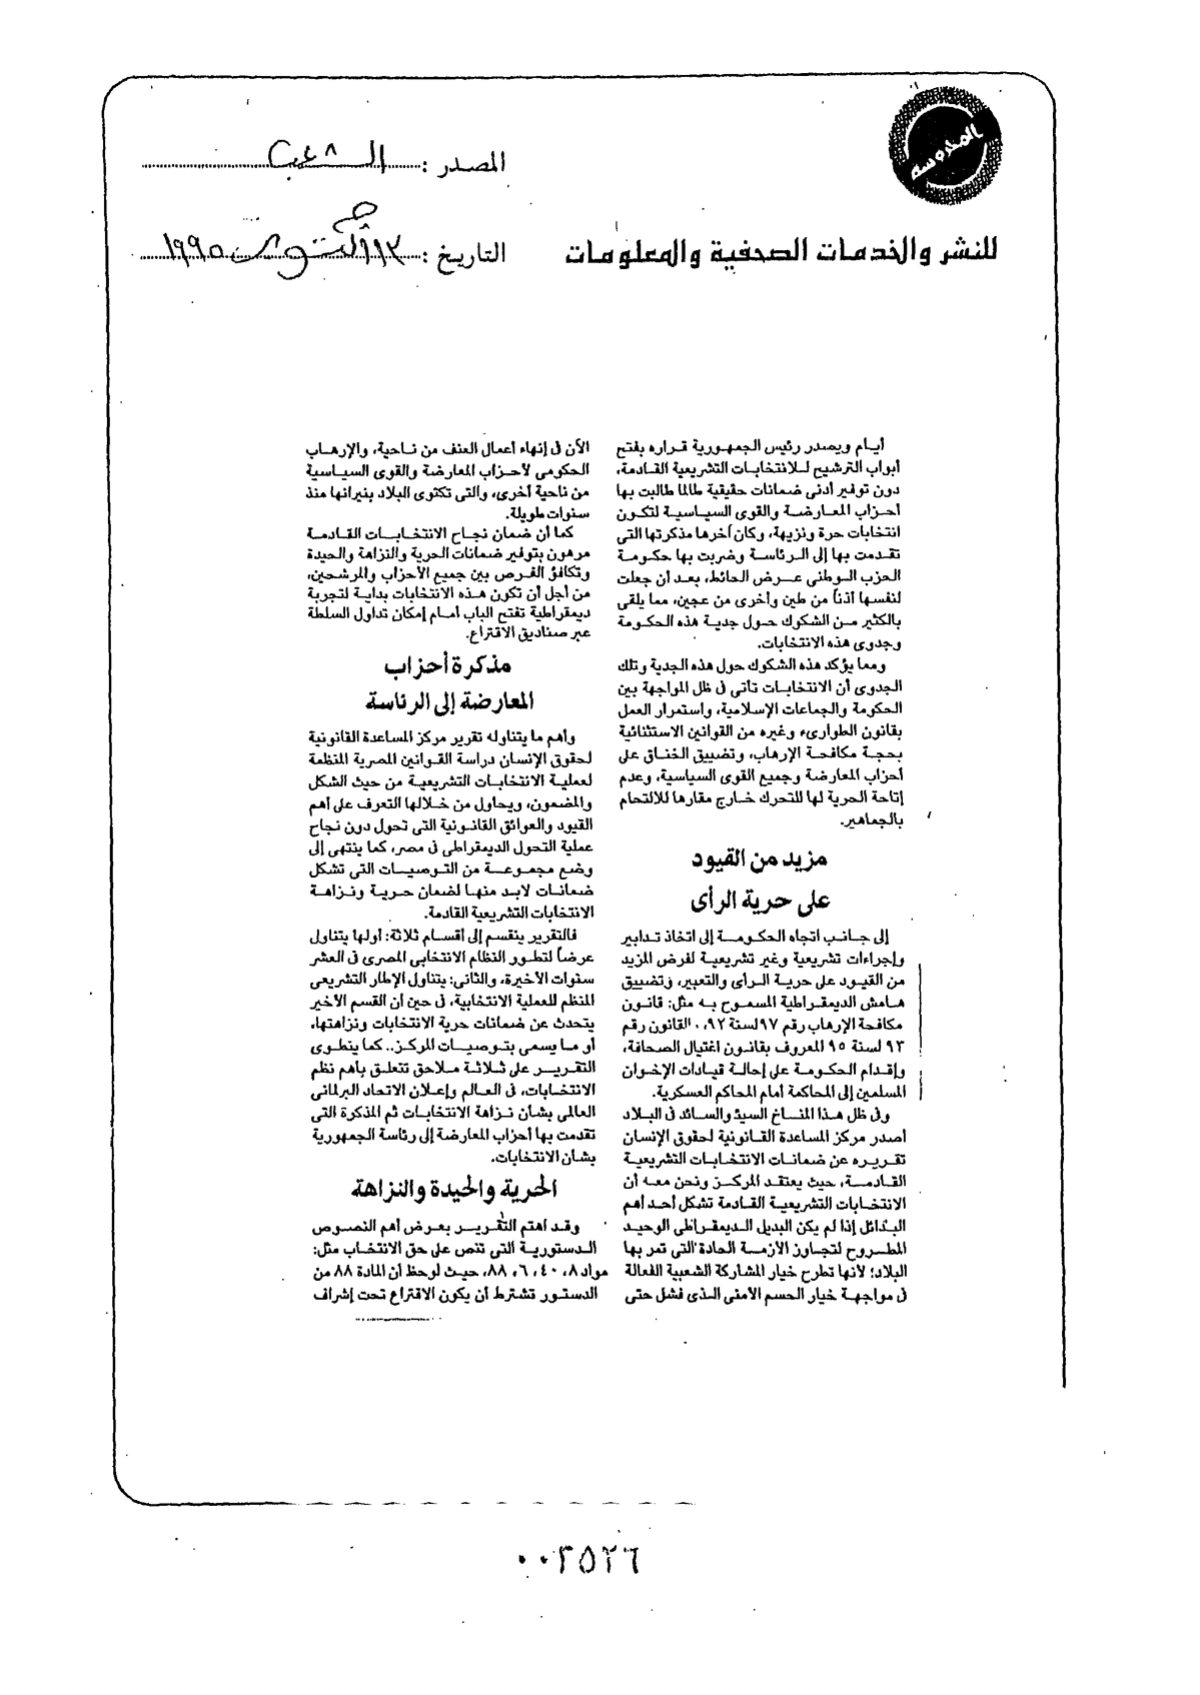 المحروسة
المصدر : الشعب
للنشر والخدمات الصحفية والمعلومات
التاريخ : ١٣ أكتوبر ١٩٩٥
أيام ويصدر رئيس الجمهورية قراره بفتح
أبواب الترشيح للانتخابات التشريعية القادمة،
دون توفير أدنى ضمانات حقيقية طالما طالبت بها
أحزاب المعارضة والقوى السياسية لتكون
انتخابات حرة ونزيهة، وكان آخرها مذكرتها التى
تقدمت بها إلى الرئاسة وضربت بها حكومة
الحزب الوطنى عرض الحائط، بعد أن جعلت
لنفسها أذناً من طين وأخرى من عجين، مما يلقى
بالكثير من الشكوك حول جدية هذه الحكومة
وجدوى هذه الانتخابات.
ومما يؤكد هذه الشكوك حول هذه الجدية وتلك
الجدوى أن الانتخابات تأتى فى ظل المواجهة بين
الحكومة والجماعات الإسلامية، واستمرار العمل
بقانون الطوارىء وغيره من القوانين الاستثنائية
بحجة مكافحة الإرهاب، وتضييق الخناق على
أحزاب المعارضة وجميع القوى السياسية، وعدم
إتاحة الحرية لها للتحرك خارج مقارها للالتحام
بالجماهير.
مزيد من القيود
على حرية الرأى
إلى جانب اتجاه الحكومة إلى اتخاذ تدابير
وإجراءات تشريعية وغير تشريعية لفرض المزيد
من القيود على حرية الرأى والتعبير، وتضييق
هامش الديمقراطية المسموح به مثل: قانون
مكافحة الإرهاب رقم ٩٧ لسنة ٩٢، القانون رقم
٩٣ لسنة ٩٥ المعروف بقانون اغتيال الصحافة،
وإقدام الحكومة على إحالة قيادات الإخوان
المسلمين إلى المحاكمة أمام المحاكم العسكرية.
وفى ظل هذا المناخ السيئ والسائد فى البلاد
أصدر مركز المساعدة القانونية لحقوق الإنسان
تقريره عن ضمانات الانتخابات التشريعية
القادمة، حيث يعتقد المركز ونحن معه أن
الانتخابات التشريعية القادمة تشكل أحد أهم
البدائل إذا لم يكن البديل الديمقراطى الوحيد
المطروح لتجاوز الأزمة الحادة التى تمر بها
البلاد؛ لأنها تطرح خيار المشاركة الشعبية الفعالة
فى مواجهة خيار الحسم الأمنى الذى فشل حتى
الآن فى إنهاء أعمال العنف من ناحية، والإرهاب
الحكومى لأحزاب المعارضة والقوى السياسية
من ناحية أخرى، والتى تكتوى البلاد بنيرانها منذ
سنوات طويلة.
كما أن ضمان نجاح الانتخابات القادمة
مرهون بتوفير ضمانات الحرية والنزاهة والحيدة
وتكافؤ الفرص بين جميع الأحزاب والمرشحين،
من أجل أن تكون هذه الانتخابات بداية لتجربة
ديمقراطية تفتح الباب أمام إمكان تداول السلطة
عبر صناديق الاقتراع.
مذكرة أحزاب
المعارضة إلى الرئاسة
وأهم ما يتناوله تقرير مركز المساعدة القانونية
لحقوق الإنسان دراسة القوانين المصرية المنظمة
لعملية الانتخابات التشريعية من حيث الشكل
والمضمون، ويحاول من خلالها التعرف على أهم
القيود والعوائق القانونية التى تحول دون نجاح
عملية التحول الديمقراطى فى مصر، كما ينتهى إلى
وضع مجموعة من التوصيات التى تشكل
ضمانات لابد منها لضمان حرية ونزاهة
الانتخابات التشريعية القادمة.
فالتقرير ينقسم إلى أقسام ثلاثة: أولها يتناول
عرضاً لتطور النظام الانتخابى المصرى فى العشر
سنوات الأخيرة، والثانى: يتناول الإطار التشريعى
المنظم للعملية الانتخابية، فى حين أن القسم الأخير
يتحدث عن ضمانات حرية الانتخابات ونزاهتها،
أو ما يسمى بتوصيات المركز.. كما ينطوى
التقرير على ثلاثة ملاحق تتعلق بأهم نظم
الانتخابات، فى العالم وإعلان الاتحاد البرلمانى
العالمى بشأن نزاهة الانتخابات ثم المذكرة التى
تقدمت بها أحزاب المعارضة إلى رئاسة الجمهورية
بشأن الانتخابات.
الحرية والحيدة والنزاهة
وقد اهتم التقرير بعرض أهم النصوص
الدستورية التى تنص على حق الانتخاب مثل:
مواد ٨، ٤٠، ٦، ٨٨، حيث لوحظ أن المادة ٨٨ من
الدستور تشترط أن يكون الاقتراع تحت إشراف
٠٠٢٥٢٦